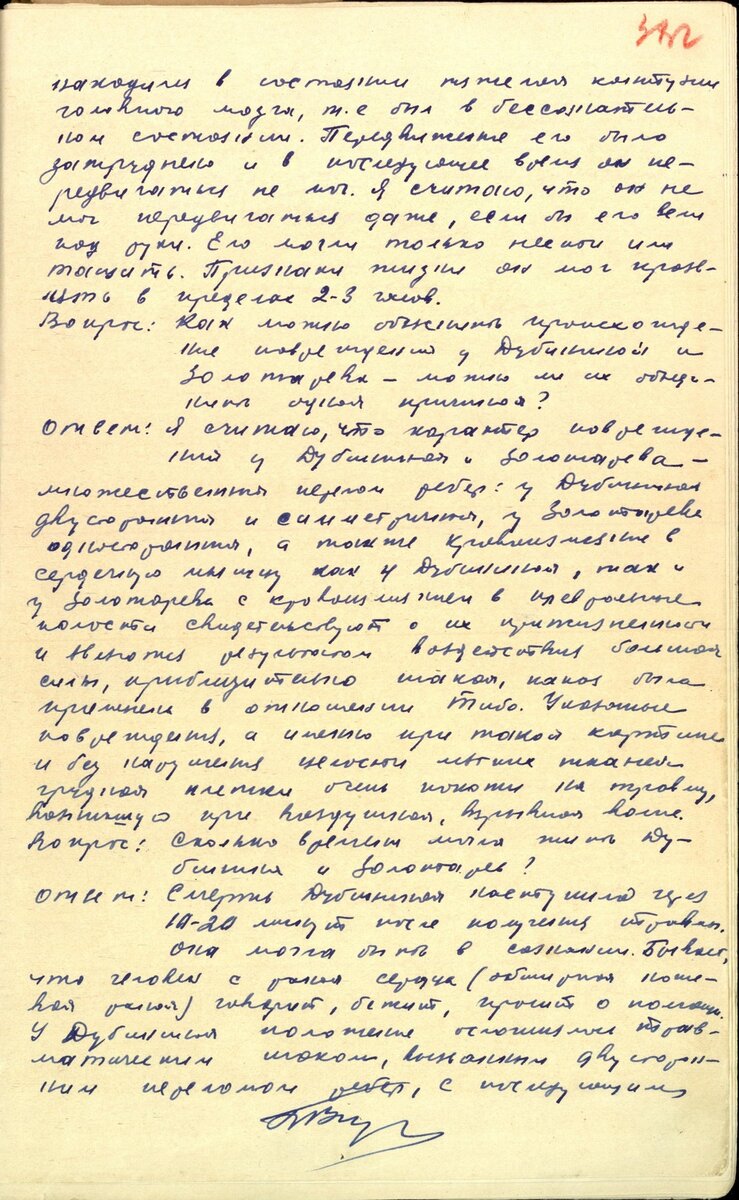 382
находился в состоянии тяжелой контузии
головного мозга, т.е был в бессознатель-
ном состоянии. Передвижение его было
затруднено и в последующее время он пе-
редвигаться не мог. Я считаю, что он не
мог передвигаться даже, если бы его вели
под руки. Его могли только нести или
тащить. Признаки жизни он мог прояв-
лять в пределах 2-3 часов.
Вопрос: Как можно объяснить происхожде-
ние повреждений у Дубининой и
Золотарева – можно ли их объеди-
нить одной причиной?
Ответ: Я считаю, что характер поврежде-
ний у Дубининой и Золотарева –
множественный перелом ребер: у Дубининой
двусторонний и симметричный, у Золотарева
односторонний, а также кровоизлияние в
сердечную мышцу как у Дубининой, так и
у Золотарева с кровоизлиянием в плевральные
полости свидетельствуют о их прижизненности
и являются результатом воздействия большой
силы, приблизительно такой, какая была
применена в отношении Тибо. Указанные
повреждения, а именно при такой картине
и без нарушения целости мягких тканей
грудной клетки очень похожи на травму,
возникшую при воздушной, взрывной волне.
Вопрос: Сколько времени могли жить Ду-
бинина и Золотарев?
Ответ: Смерть Дубининой наступила через
10-20 минут после получения травмы.
Она могла быть в сознании. Бывает,
что человек с раной сердца (обширная ноже-
вая рана) говорит, бежит, просит о помощи.
У Дубининой положение осложнилось трав-
матическим шоком, вызванным двусторон-
ним переломом ребер, с последующим